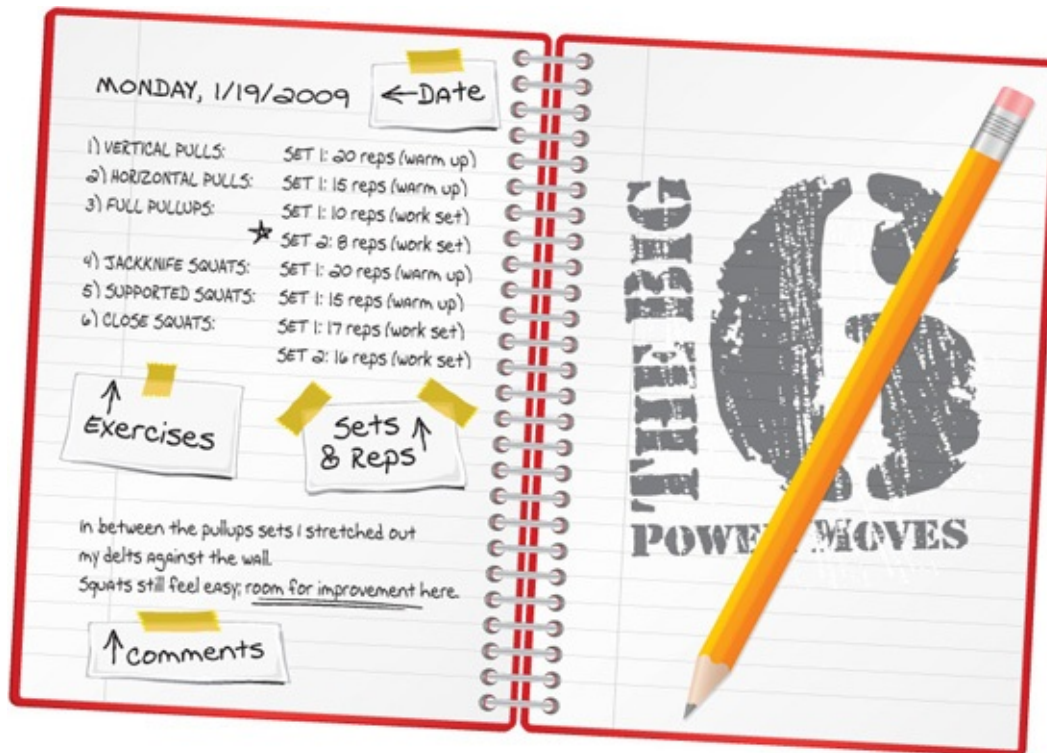 MONDAY, 1/19/2009
←Date
1) VERTICAL PULLS: SET 1: 20 reps (warm up)
2) HORIZONTAL PULLS: SET 1: 15 reps (warm up)
3) FULL PULLUPS: SET 1: 10 reps (work set)
☆ SET 2: 8 reps (work set)
4) JACKKNIFE SQUATS: SET 1: 20 reps (warm up)
5) SUPPORTED SQUATS: SET 1: 15 reps (warm up)
6) CLOSE SQUATS: SET 1: 17 reps (work set)
SET 2: 16 reps (work set)
↑
Exercises
Sets ↑
& Reps
In between the pullups sets I stretched out
my delts against the wall.
Squats still feel easy; room for improvement here.
↑ Comments
THE BIG
6
POWER MOVES